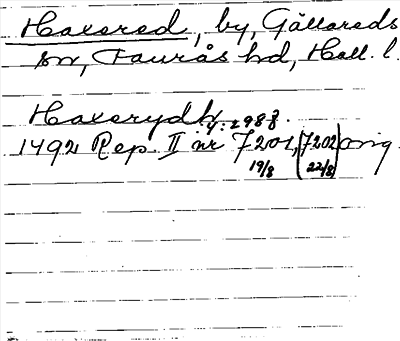 Haxered, by, Gällareds
sn, Faurås hd, Hall. l.
Haxerydh
y: 2988.
1492 Rep. II nr 7201, (7202) orig.
19/8 22/8